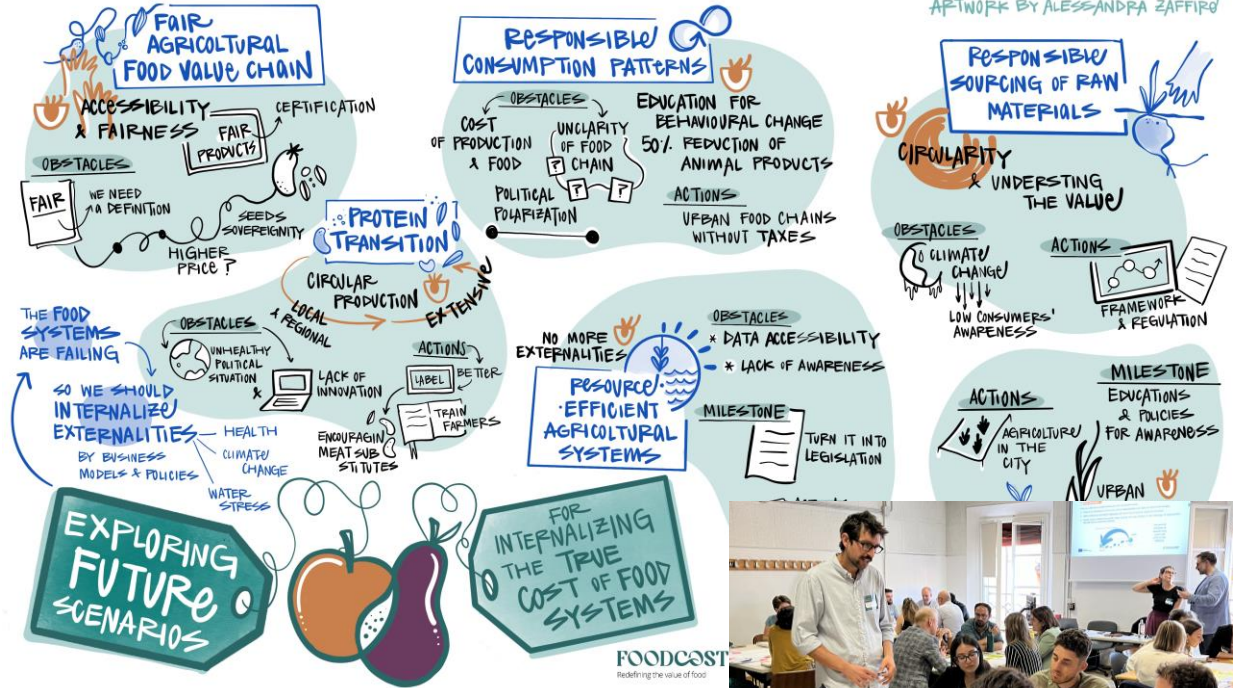 ARTWORK BY ALESSANDRA ZAFFIRO
FAIR
AGRICOLTURAL
FOOD VALUE CHAIN
ACCESSIBILITY
& FAIRNESS
FAIR
PRODUCTS
CERTIFICATION
OBSTACLES
FAIR
WE NEED
a DEFINITION
HIGHER
PRICE?
SEEDS
SOVEREIGNITY
RESPONSIBLE
CONSUMPTION PATTERNS
OBSTACLES
COST
OF PRODUCTION
& FOOD
UNCLARITY
OF FOOD
CHAIN
?
?
?
POLITICAL
POLARIZATION
EDUCATION FOR
BEHAVIOURAL CHANGE
50% REDUCTION OF
ANIMAL PRODUCTS
ACTIONS
URBAN FOOD CHAINS
WITHOUT TAXES
RESPONSIBLE
SOURCING OF RAW
MATERIALS
CIRCULARITY
& UNDERSTING
THE VALUE
OBSTACLES
CLIMATE
CHANGE
LOW CONSUMERS'
AWARENESS
ACTIONS
FRAMEWORK
& REGULATION
PROTEIN
TRANSITION
CIRCULAR
PRODUCTION
LOCAL
& REGIONAL
EXTENSIVE
OBSTACLES
UNHEALTHY
POLITICAL
SITUATION
&
LACK OF
INNOVATION
ACTIONS
LABEL
BETTER
TRAIN
FARMERS
ENCOURAGIN
MEAT SUB
STITUTES
THE FOOD
SYSTEMS
ARE FAILING
SO WE SHOULD
INTERNALIZE
EXTERNALITIES
BY BUSINESS
MODELS & POLICIES
HEALTH
CLIMATE
CHANGE
WATER
STRESS
NO MORE
EXTERNALITIES
RESOURCE
-EFFICIENT
AGRICOLTURAL
SYSTEMS
OBSTACLES
* DATA ACCESSIBILITY
* LACK OF AWARENESS
MILESTONE
TURN IT INTO
LEGISLATION
ACTIONS
AGRICULTURE
IN THE
CITY
MILESTONE
EDUCATIONS
& POLICIES
FOR AWARENESS
URBAN
EXPLORING
FUTURE
SCENARIOS
FOR
INTERNALIZING
THE TRUE
COST OF FOOD
SYSTEMS
FOODCOST
Redefining the value of food